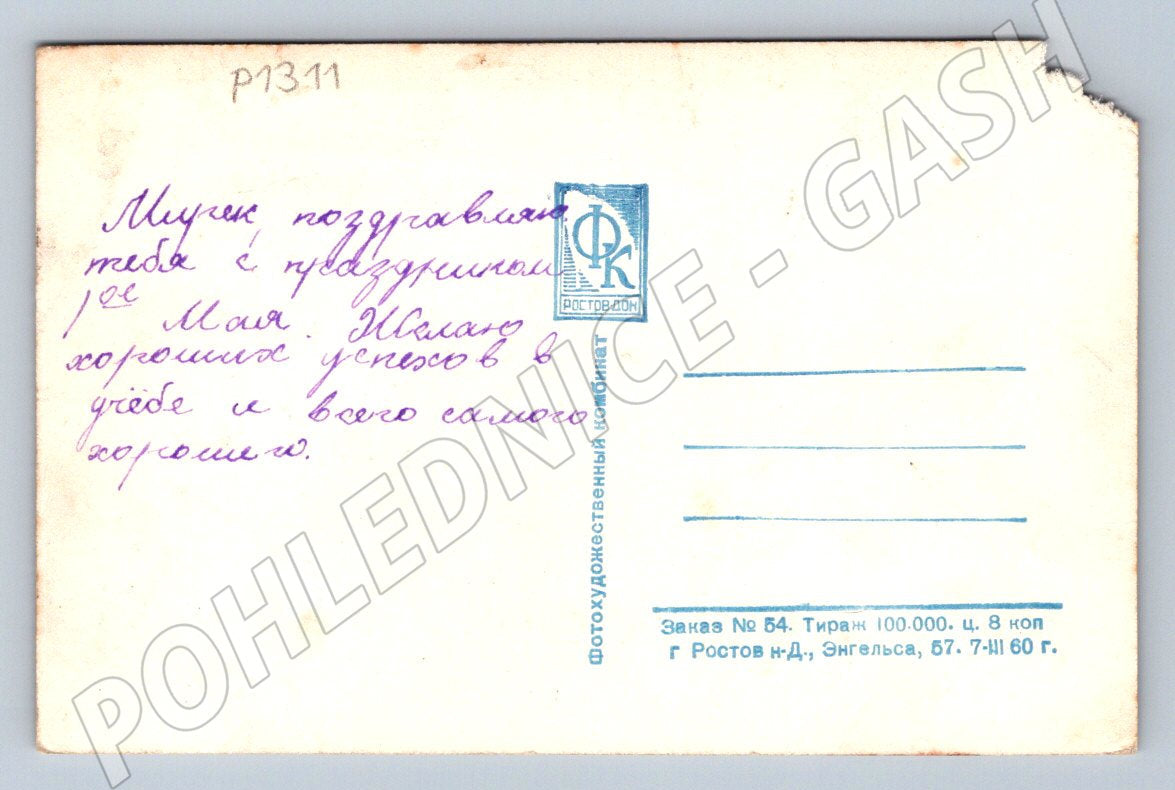 P1311
Мирек, поздравляю
тебя с праздником
1ое Мая. Желаю
хороших успехов в
учёбе и всего самого
хорошего.
ФК
РОСТОВ-ДОН
Фотохудожественный комбинат
Заказ № 54. Тираж 100.000. ц. 8 коп
г Ростов н-Д., Энгельса, 57. 7-III 60 г.
POHLEDNICE - GASH